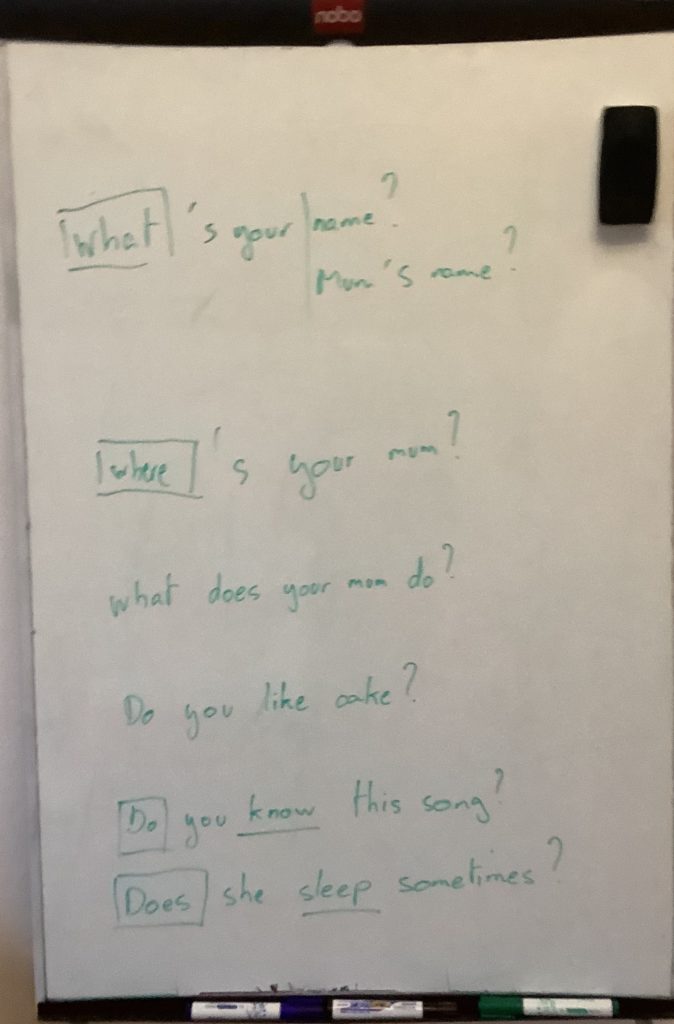 nobo
What's your name?
Mum's name?
Where's your mum?
What does your mum do?
Do you like cake?
Do you know this song?
Does she sleep sometimes?